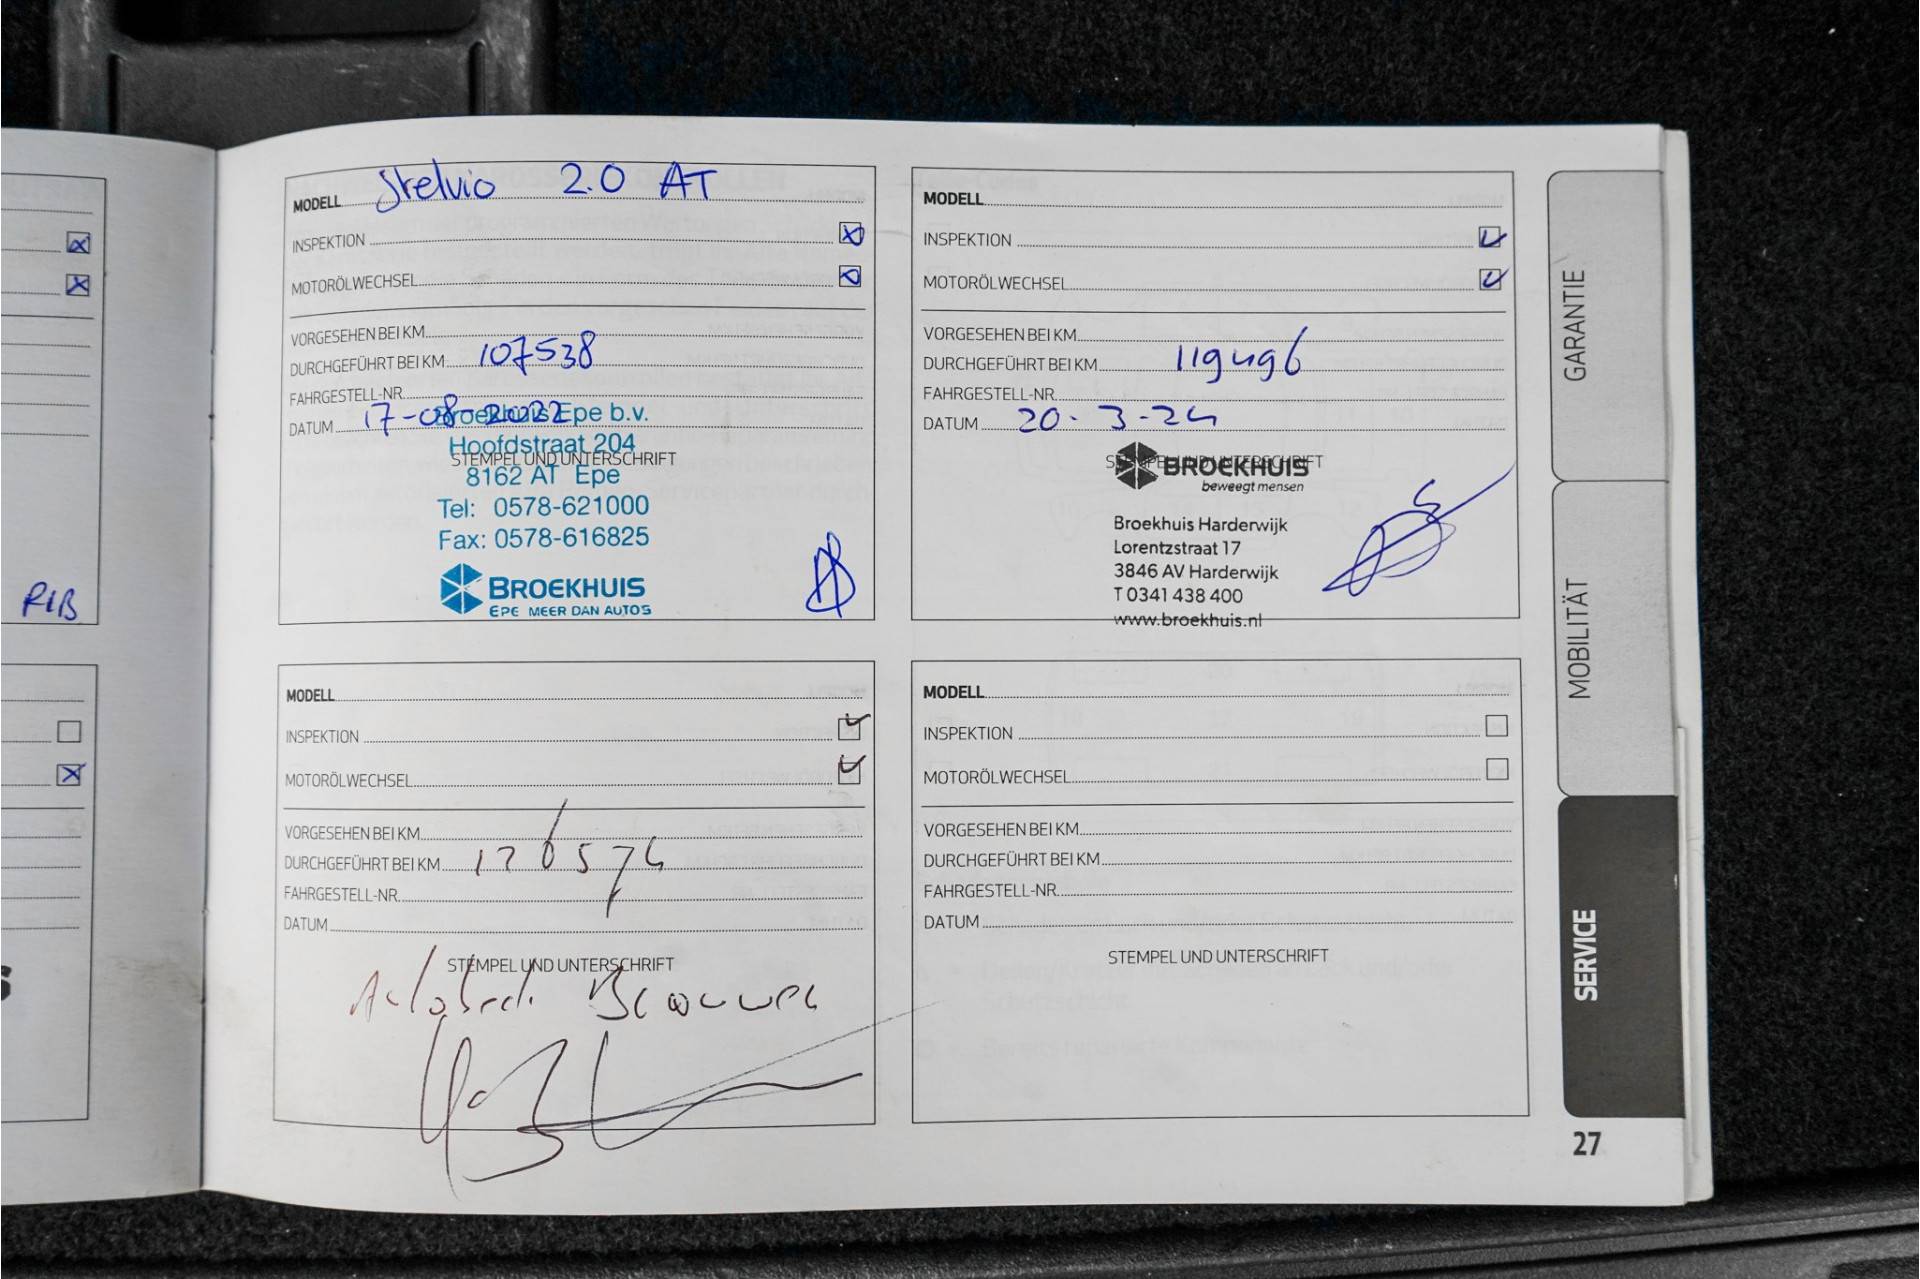 PLB
MODELL Stelvio 2.0 AT
INSPEKTION
MOTORÖLWECHSEL
VORGESEHEN BEI KM
DURCHGEFÜHRT BEI KM 107538
FAHRGESTELL-NR.
DATUM 17-08-2022
STEMPEL UND UNTERSCHRIFT
Broekhuis Epe b.v.
Hoofdstraat 204
8162 AT Epe
Tel: 0578-621000
Fax: 0578-616825
BROEKHUIS
EPE MEER DAN AUTOS
MODELL
INSPEKTION
MOTORÖLWECHSEL
VORGESEHEN BEI KM
DURCHGEFÜHRT BEI KM 119496
FAHRGESTELL-NR
DATUM 20-3-24
STEMPEL UND UNTERSCHRIFT
BROEKHUIS
beweegt mensen
Broekhuis Harderwijk
Lorentzstraat 17
3846 AV Harderwijk
T 0341 438 400
www.broekhuis.nl
MODELL
INSPEKTION
MOTORÖLWECHSEL
VORGESEHEN BEI KM
DURCHGEFÜHRT BEI KM 126574
FAHRGESTELL-NR.
DATUM
STEMPEL UND UNTERSCHRIFT
Autotech Brouwer
MODELL
INSPEKTION
MOTORÖLWECHSEL
VORGESEHEN BEI KM
DURCHGEFÜHRT BEI KM
FAHRGESTELL-NR.
DATUM
STEMPEL UND UNTERSCHRIFT
GARANTIE
MOBILITÄT
SERVICE
27